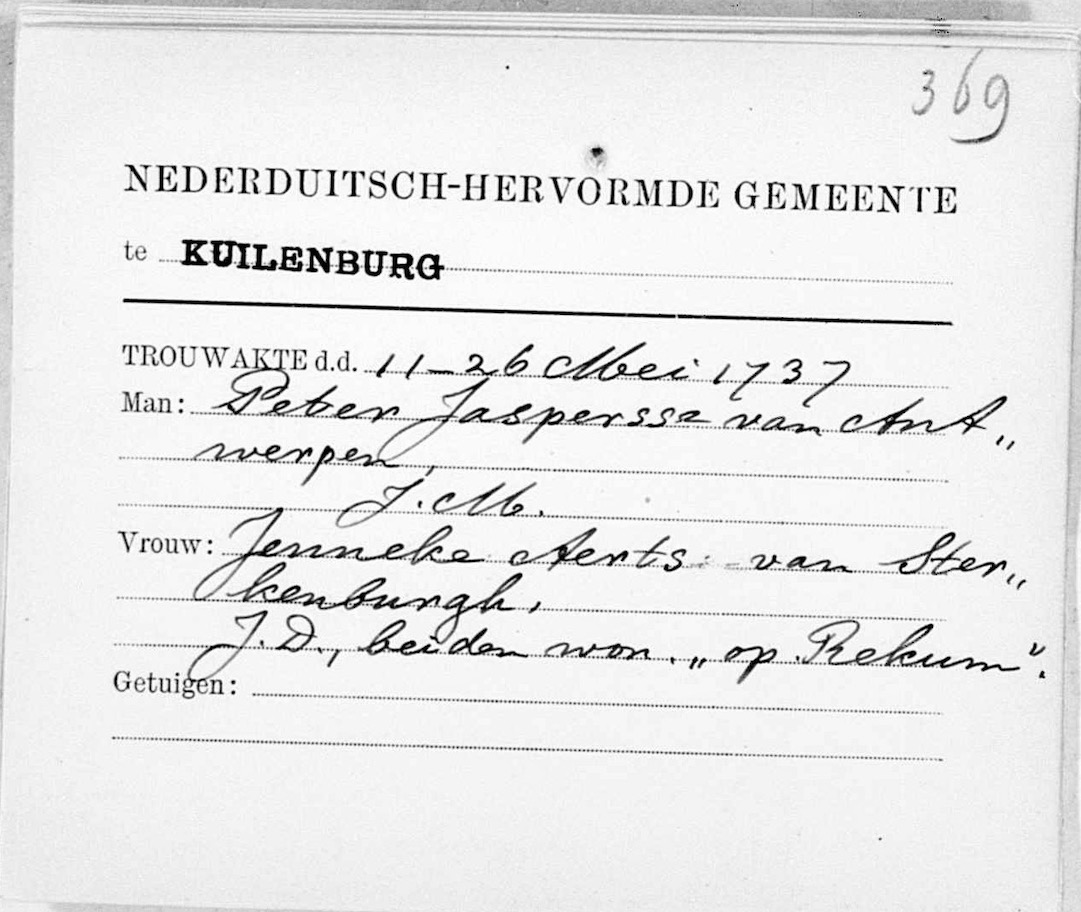 369
NEDERDUITSCH-HERVORMDE GEMEENTE
te KUILENBURG
TROUWAKTE d.d. 11-26 Mei 1737
Man: Peter Jasperssz van Ant„
werpen,
J.M.
Vrouw: Jenneke Aerts van Ster„
kenburgh,
J.D., beiden won. „op Rekum”.
Getuigen: